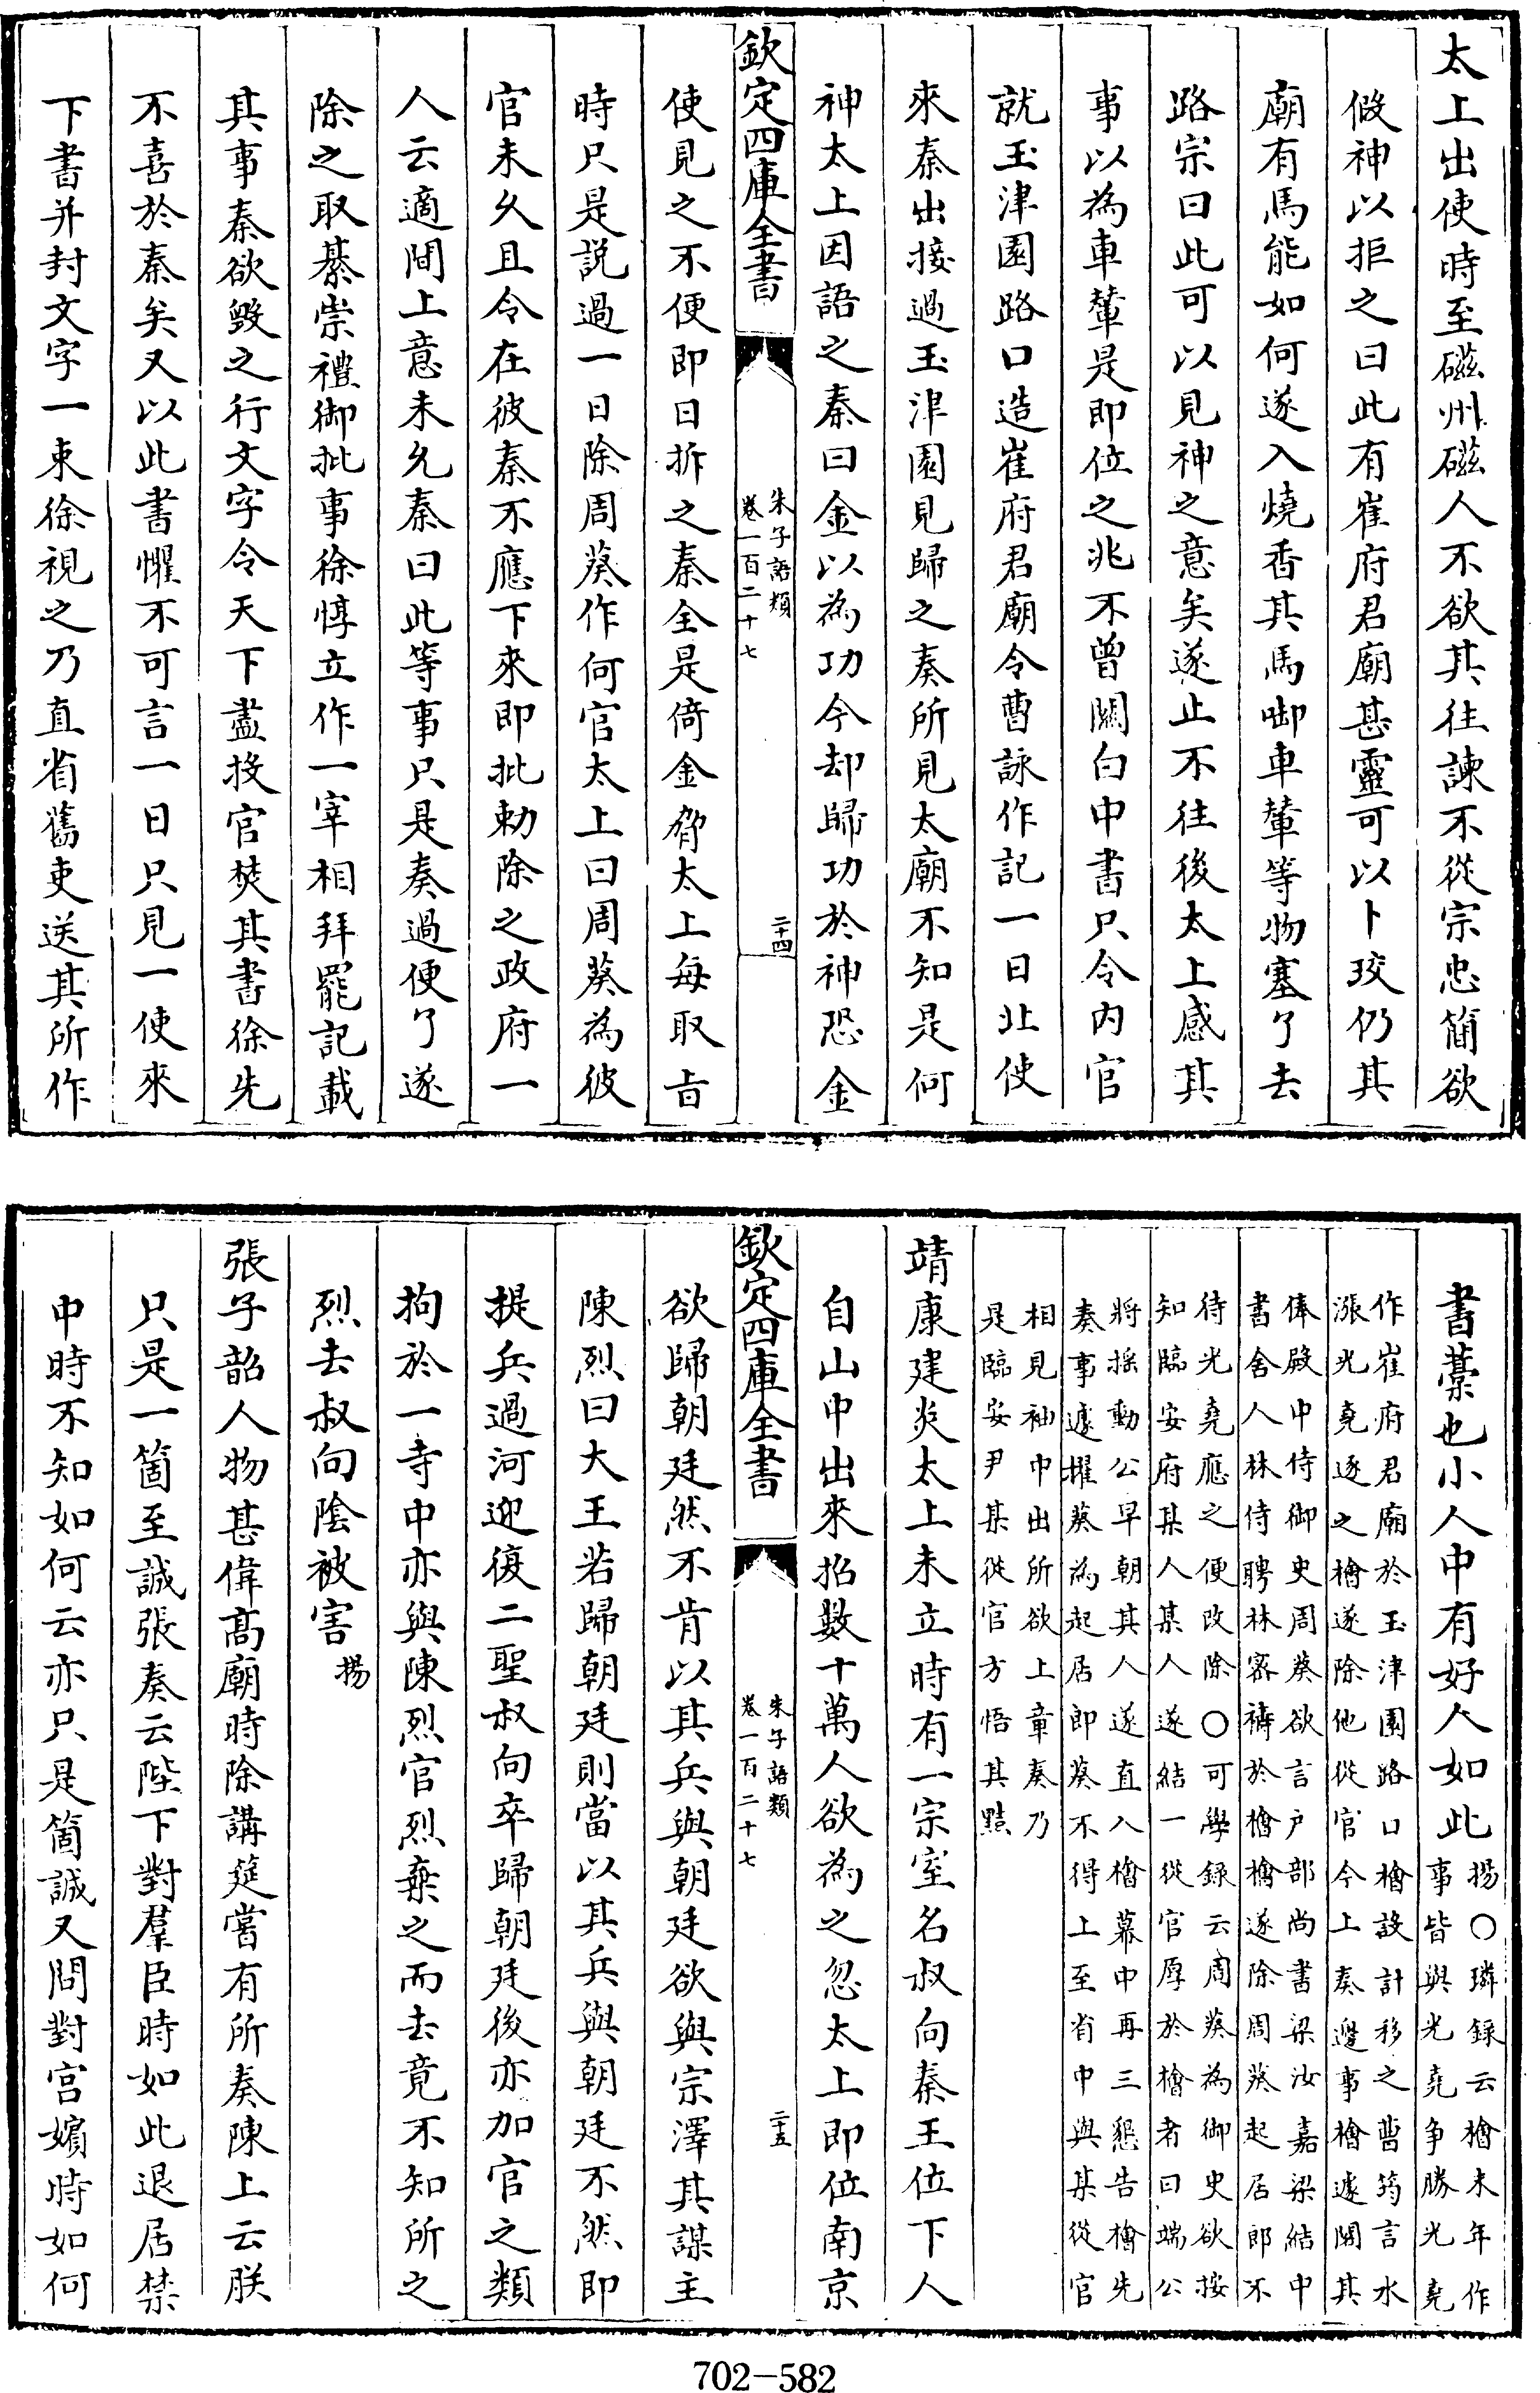 太上出使時至磁州磁人不欲其往諫不從宗忠簡欲
假神以拒之曰此有崔府君廟甚靈可以卜珓仍其
廟有馬能如何遂入燒香其馬啣車輦等物塞了去
路宗曰此可以見神之意矣遂止不往後太上感其
事以為車輦是即位之兆不曾關白中書只令内官
就玉津園路口造崔府君廟令曹詠作記一日北使
來秦出接過玉津園見歸之奏所見太廟不知是何
神太上因語之秦曰金以為功今却歸功於神恐金
欽定四庫全書
朱子語類
卷一百二十七
二十四
使見之不便即日拆之秦全是倚金脅太上每取旨
時只是説過一日除周葵作何官太上曰周葵為彼
官未乆且令在彼秦不應下來即批勅除之政府一
人云適間上意未允秦曰此等事只是奏過便了遂
除之取綦崇禮御批事徐惇立作一宰相拜罷記載
其事秦欲毁之行文字令天下盡投官焚其書徐先
不喜於秦矣又以此書懼不可言一日只見一使來
下書并封文字一束徐視之乃直省舊吏送其所作
書藁也小人中有好人如此
揚〇璘録云檜末年作
事皆與光堯争勝光堯
作崔府君廟於玉津園路口檜設計移之曹筠言水
漲光堯逐之檜遂除他從官今上奏邊事檜遽閣其
俸殿中侍御史周葵欲言户部尚書梁汝嘉梁結中
書舍人林侍聘林密禱於檜檜遂除周葵起居郎不
待光堯應之便改除〇可學録云周葵為御史欲按
知臨安府某人某人遂結一從官厚於檜者曰端公
將揺動公早朝其人遂直入檜幕中再三懇告檜先
奏事遽擢葵為起居郎葵不得上至省中與某從官
相見袖中出所欲上章奏乃
是臨安尹某從官方悟其㸃
靖康建炎太上未立時有一宗室名叔向秦王位下人
自山中出來招數十萬人欲為之忽太上即位南京
欽定四庫全書
朱子語類
卷一百二十七
二十五
欲歸朝廷然不肯以其兵與朝廷欲與宗澤其謀主
陳烈曰大王若歸朝廷則當以其兵與朝廷不然即
提兵過河迎復二聖叔向卒歸朝廷後亦加官之類
拘於一寺中亦與陳烈官烈棄之而去竟不知所之
烈去叔向陰被害揚
張子韶人物甚偉髙廟時除講筵嘗有所奏陳上云朕
只是一箇至誠張奏云陛下對羣臣時如此退居禁
中時不知如何云亦只是箇誠又問對宫嬪時如何
702-582